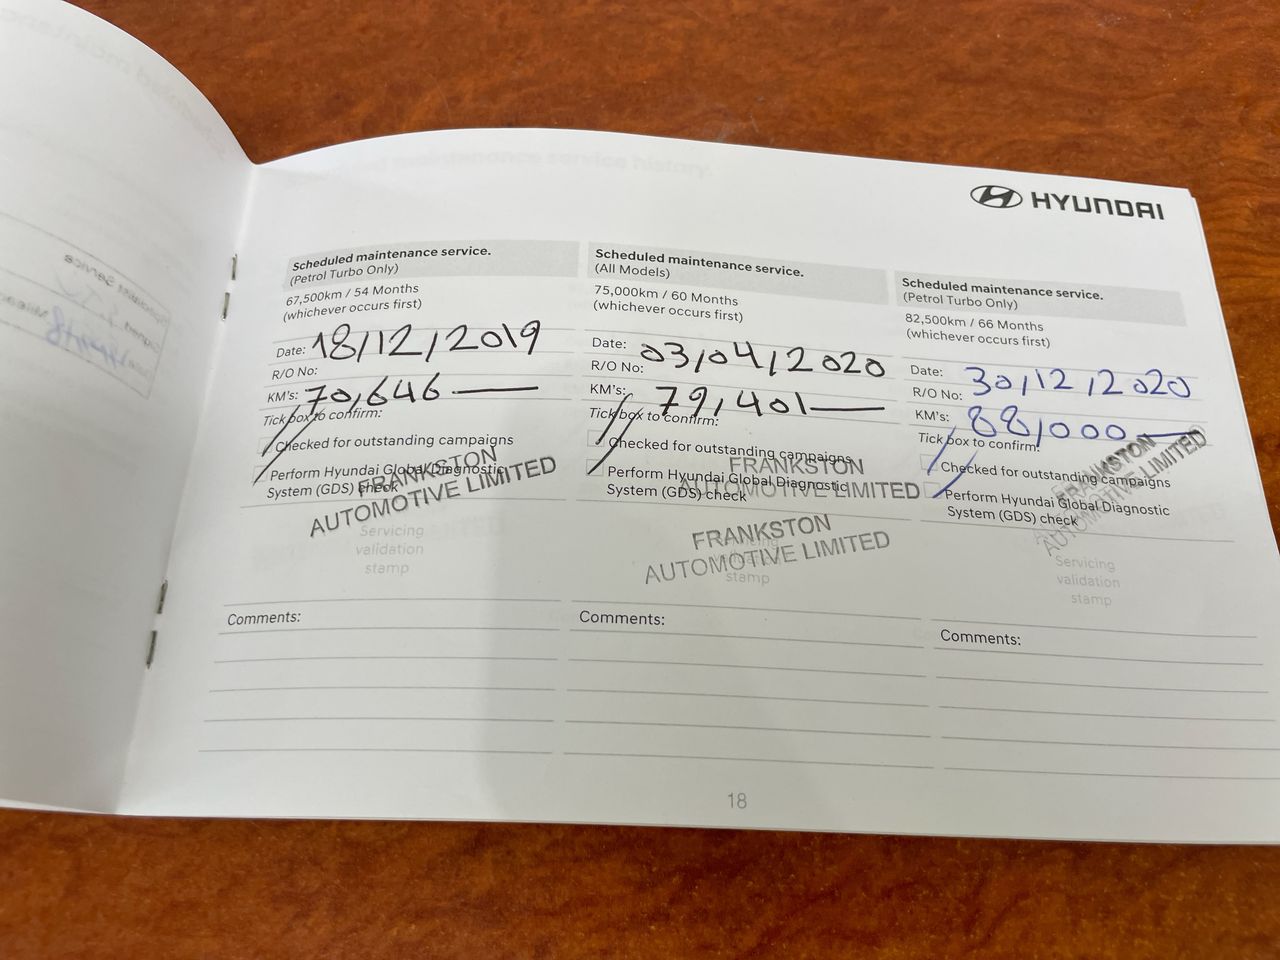 HYUNDAI
Scheduled maintenance service.
(Petrol Turbo Only)
67,500km / 54 Months
(whichever occurs first)
Date: 18/12/2019
R/O No:
KM's: 70,646
Tick box to confirm:
Checked for outstanding campaigns
Perform Hyundai Global Diagnostic
System (GDS) check
FRANKSTON
AUTOMOTIVE LIMITED
Servicing
validation
stamp
Comments:
Scheduled maintenance service.
(All Models)
75,000km / 60 Months
(whichever occurs first)
Date: 03/04/2020
R/O No:
KM's: 79,401
Tick box to confirm:
Checked for outstanding campaigns
Perform Hyundai Global Diagnostic
System (GDS) check
FRANKSTON
AUTOMOTIVE LIMITED
FRANKSTON
AUTOMOTIVE LIMITED
Servicing
validation
stamp
Comments:
Scheduled maintenance service.
(Petrol Turbo Only)
82,500km / 66 Months
(whichever occurs first)
Date: 30/12/2020
R/O No:
KM's: 88,000
Tick box to confirm:
Checked for outstanding campaigns
Perform Hyundai Global Diagnostic
System (GDS) check
FRANKSTON
AUTOMOTIVE LIMITED
Servicing
validation
stamp
Comments:
18